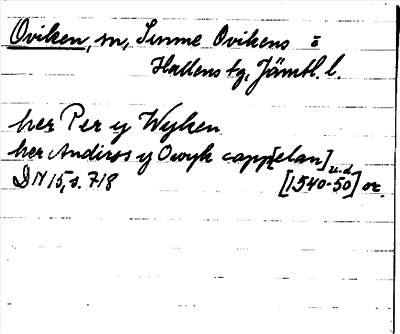 Oviken, sn, Sunne Ovikens o
Hallens tg, Jämtl. l.
her Per y Wyken
her Andirss y Owyk capp[elan]
DN 15, s. 718 u.d. [1540-50] or.